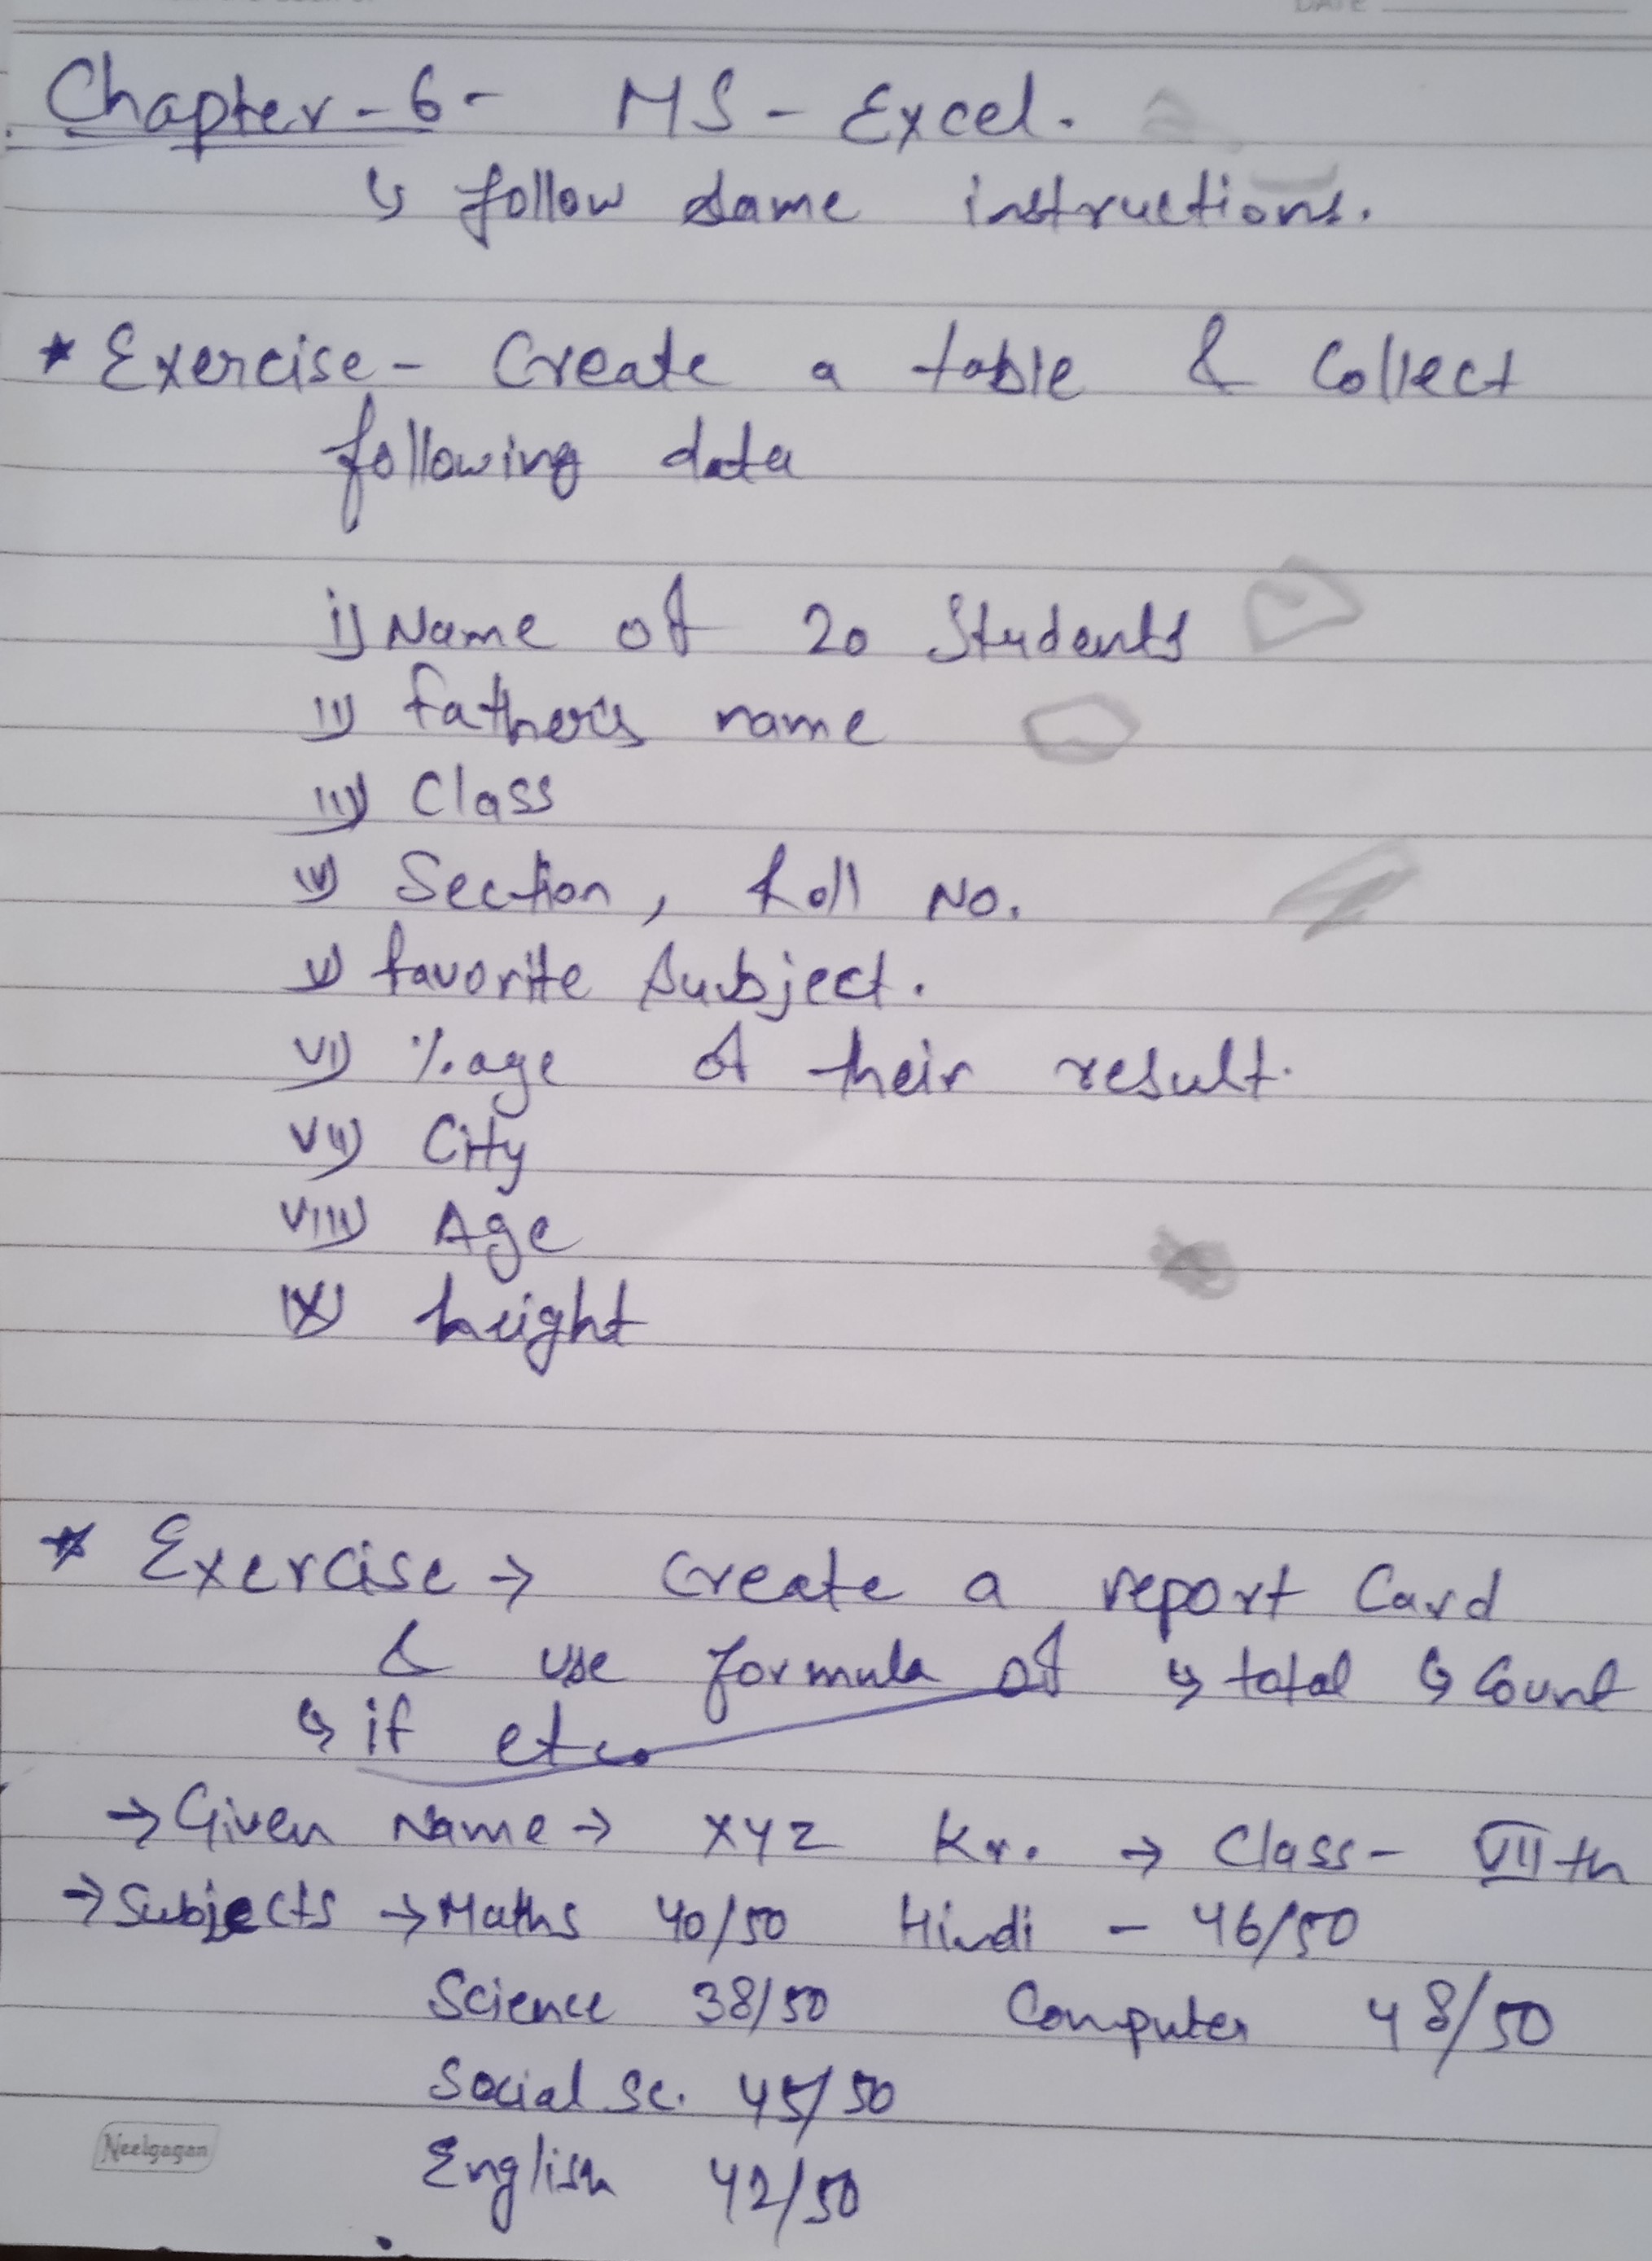 DATE
Chapter-6- MS-Excel.
↳ follow same instructions.
* Exercise- Create a table & Collect
following data
i) Name of 20 Students
ii) father's name
iii) Class
iv) Section, Roll No.
v) favorite Subject.
vi) %age of their result.
vii) City
viii) Age
ix) height
* Exercise → Create a report Card
& use formula of ↳ total ↳ Count
↳ if etc.
→ Given Name → XYZ Kr. → Class- VIIth
→ Subjects → Maths 40/50 Hindi - 46/50
Science 38/50 Computer 48/50
Social Sc. 45/50
English 42/50
Neelgagan